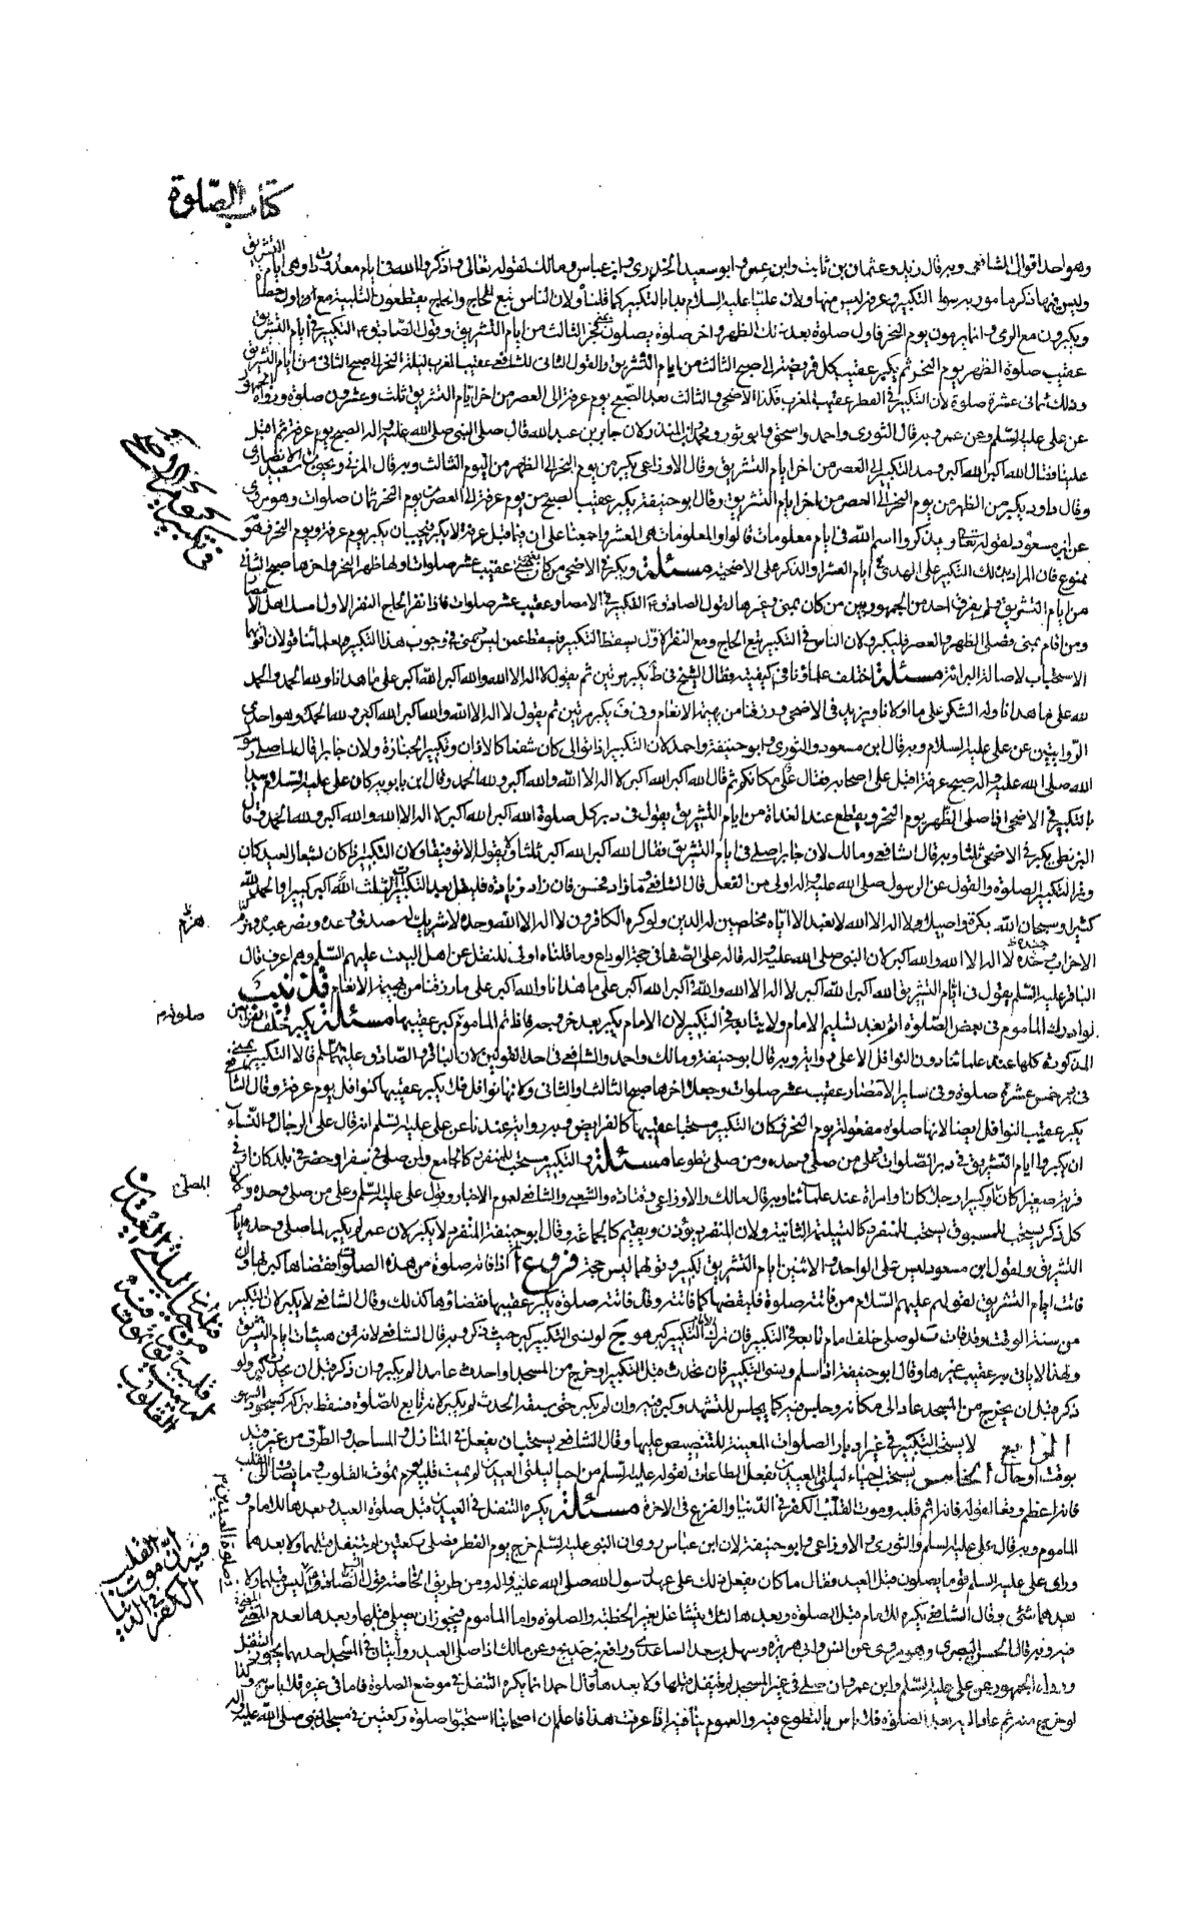 كتاب الصّلوة
وهو احد اقوال الشافعي وبه قال زيد وعثمان بن ثابت وابن عمر وابو سعيد الخدري وابن عباس ومالك لقوله تعالى واذكروا الله في ايام معدودات وهي ايام التشريق
وليس فيها ذكر مامور به سوى التكبير وعرفة ليس منها ولان عليّا عليه السلام بدا بالتكبير كما قلنا ولان الناس تبع للحاج والحاج يقطعون التلبية مع اول حصاة
ويكبرون مع الرمي وانما يرمون يوم النحر فاول صلوة بعد ذلك الظهر واخر صلوة يصلون بمنى فجر الثالث من ايام التشريق وقول الصادق ع التكبير في ايام التشريق
عقيب صلوة الظهر يوم النحر ثم يكبر عقيب كل فريضة الى صبح الثالث من ايام التشريق والقول الثاني للشافعي عقيب المغرب ليلة النحر الى صبح الثاني من ايام التشريق
وذلك ثماني عشرة صلوة لان التكبير في الفطر عقيب المغرب فكذا الاضحى والثالث بعد الصبح يوم عرفة الى العصر من اخر ايام التشريق ثلث وعشرون صلوة ورواه الجمهور
عن علي عليه السلم وعن عمر وبه قال الثوري واحمد واسحق وابو ثور ومحمد وابن المنذر لان جابر بن عبد الله قال صلى النبي صلى الله عليه واله الصبح يوم عرفة ثم اقبل
علينا فقال الله اكبر الله اكبر ومد التكبير الى العصر من اخر ايام التشريق وقال الاوزاعي يكبر من يوم النحر الى الظهر من اليوم الثالث وبه قال المزني ويحيى بن سعيد الانصاري
وقال داود يكبر من الظهر من يوم النحر الى العصر من اخر ايام التشريق وقال ابو حنيفة يكبر عقيب الصبح من يوم عرفة الى العصر من يوم النحر ثمان صلوات وهو مروي
عن ابن مسعود لقوله تعالى ويذكروا اسم الله في ايام معلومات قالوا والمعلومات هي العشر واجمعنا على ان فيما قبل عرفة لا يكبر فيجب ان يكبر يوم عرفة ويوم النحر وهو
ممنوع فان المراد بذلك التكبير على الهدي ايام العشر او الذكر على الاضحية مسئلة ويكبر في الاضحى من كان بمنى عقيب خمس عشر صلوات اولها ظهر النحر واخرها صبح الثالث
من ايام التشريق ولم يفرق احد من الجمهور بين من كان بمنى وغيرها لقول الصادق ع التكبير في الامصار عقيب عشر صلوات فاذا نفر الحاج النفر الاول امسك اهل الامصار
ومن اقام بمنى فصلى الظهر والعصر فليكبر ولان الناس في التكبير تبع الحاج ومع النفر الاول يسقط التكبير فيسقط عمن ليس بمنى وفي وجوب هذا التكبير لعلمائنا قولان اقواهما
الاستحباب لاصالة البرائة مسئلة اختلف علماؤنا في كيفيته فقال الشيخ في ط يكبر مرتين ثم يقول لا اله الا الله والله اكبر الله اكبر على ما هدانا ولله الحمد والحمد
لله على ما هدانا وله الشكر على ما اولانا ويزيد في الاضحى ورزقنا من بهيمة الانعام وفي ف يكبر مرتين ثم يقول لا اله الا الله والله اكبر الله اكبر ولله الحمد وهو احدى
الروايتين عن علي عليه السلام وبه قال ابن مسعود والثوري وابو حنيفة واحمد لان التكبير اذا توالى كان شفعا كالاذان وتكبير الجنازة ولان جابرا قال لما صلى رسول
الله صلى الله عليه واله صبح عرفة اقبل على اصحابه فقال على مكانكم ثم قال الله اكبر الله اكبر لا اله الا الله والله اكبر ولله الحمد وقال ابن بابويه كان علي عليه السلام يبدا
بالتكبير في الاضحى اذا صلى الظهر يوم النحر ويقطع عند الغداة من ايام التشريق يقول في دبر كل صلوة الله اكبر الله اكبر لا اله الا الله والله اكبر ولله الحمد وقال
البزنطي يكبر في الاضحى ثلثا وبه قال الشافعي ومالك لان جابرا صلى في ايام التشريق فقال الله اكبر الله اكبر ثلثا ولا يقول الا توقيفا ولان التكبير اذا كان لشعار العيد كان
وترا كتكبير الصلوة والقول عن الرسول صلى الله عليه واله اولى من الفعل قال الشافعي وما زاد فحسن فان زاد زيادة فليقل بعد التكبيرات الثلث الله اكبر كبيرا والحمد لله
كثيرا وسبحان الله بكرة واصيلا ولا اله الا الله لا نعبد الا اياه مخلصين له الدين ولو كره الكافرون لا اله الا الله وحده لا شريك له صدق وعده ونصر عبده وهزم
هزم
الاحزاب وحده لا اله الا الله والله اكبر لان النبي صلى الله عليه واله قاله على الصفا في حجة الوداع وما قلناه اولى للنقل عن اهل البيت عليهم السلم وهم اعرف قال
الباقر عليه السلم يقول في ايام التشريق الله اكبر الله اكبر لا اله الا الله والله اكبر الله اكبر على ما هدانا والله اكبر على ما رزقنا من بهيمة الانعام
لو ادرك الماموم في بعض الصلوة اتم بعد تسليم الامام ولا يتابعه في التكبير لان الامام يكبر بعد خروجه فاذا تم الماموم كبر عقيبها مسئلة يكبر خلف الفرايض
المذكورة كلها عند علمائنا دون النوافل الا على رواية وبه قال ابو حنيفة ومالك واحمد والشافعي في احد القولين لان الباقر والصادق عليهما السلم قالا التكبير بمنى
في دبر خمس عشرة صلوة وفي ساير الامصار عقيب عشر صلوات وجعلا اخرها صبح الثالث او الثاني ولانها نوافل فلا يكبر عقيبها كنوافل يوم عرفة وقال الشافعي
يكبر عقيب النوافل ايضا لانها صلوة مفعولة يوم النحر فكان التكبير مستحبا عقيبها كالفرايض وفيه رواية عندنا عن علي عليه السلم انه قال على الرجال والنساء
ان يكبروا ايام التشريق في دبر الصلوات وعلى من صلى وحده ومن صلى تطوعا مسئلة والتكبير مستحب للمنفرد كالجامع ولمن صلى في سفر او حضر في بلد كان او في
المصلي
قرية صغيرا كان او كبيرا رجلا كان او امراة عند علمائنا وبه قال مالك والاوزاعي وقتادة والشعبي والشافعي لعموم الاخبار وقول علي عليه السلم وعلى من صلى وحده ولان
كل ذكر يستحب للمسبوق يستحب للمنفرد كالتسليمة الثانية ولان المنفرد يؤذن ويقيم كالجماعة وقال ابو حنيفة المنفرد لا يكبر لان عمر لم يكبر لما صلى وحده ايام
التشريق ولقول ابن مسعود ليس على الواحد والاثنين ايام التشريق تكبير وقولهما ليس حجة فروع ا اذا فاته صلوة من هذه الصلوات فقضاها كبر لها وان
فاتت ايام التشريق لقولهم عليهم السلام من فاتته صلوة فليقضها كما فاتته وقد فاتته صلوة يكبر عقيبها فقضاؤها كذلك وقال الشافعي لا يكبر لان التكبير
من سنة الوقت وقد فات ب لو صلى خلف امام تابعه في التكبير فان ترك الامام التكبير كبر هو ج لو نسى التكبير كبر حيث ذكر وبه قال الشافعي لانه من هيئات ايام التشريق
ولهذا لا ياتي به عقيب غيرها وقال ابو حنيفة اذا سلم ونسى التكبير فان تحدث قبل التكبير او خرج من المسجد او احدث عامدا لم يكبر وان ذكر قبل ان يتكلم كبر ولو
ذكر قبل ان يخرج من المسجد عاد الى مكانه وجلس فيه كما يجلس للتشهد وكبر فيه وان لم يكبر حتى سبقه الحدث لم يكبر لانه تابع للصلوة فسقط بتركه كسجود السهو
الرابع لا يستحب التكبير في غير ادبار الصلوات المعينة للتنصيص عليها وقال الشافعي يستحب ان يفعل في المنازل والمساجد والطرق من غير قيد
بوقت او حال الخامس يستحب احياء ليلتي العيدين بفعل الطاعات لقوله عليه السلم من احيا ليلتي العيد لم يمت قلبه يوم تموت القلوب
فانه اعظم وفيها اهواله فانه اثم قلبه وموت القلب الكفر في الدنيا والفزع في الاخرة مسئلة يكره التنفل في العيدين قبل صلوة العيد وبعدها للامام و
الماموم وبه قال علي عليه السلم والثوري والاوزاعي وابو حنيفة لان ابن عباس روى ان النبي عليه السلم خرج يوم الفطر فصلى ركعتين لم يتنفل قبلهما ولا بعدهما
وراى علي عليه السلم قوما يصلون قبل العيد فقال ما كان يفعل ذلك على عهد رسول الله صلى الله عليه واله ومن طريق الخاصة قول الصادق ع ليس قبلهما ولا
بعدهما شئ وقال الشافعي يكره للامام قبل الصلوة وبعدها لئلا يتشاغل بغير الخطبة والصلوة واما الماموم فيجوز ان يصلي قبلها وبعدها لعدم المقتضى
فيه وبه قال الحسن البصري وهو مروي عن انس وابي هريرة وسهل بن سعد الساعدي ورافع بن خديج وعن مالك اذا صلى العيد روايتان في المسجد احدهما يجوز التنفل
ورواه الجمهور عن علي عليه السلم وابن عمر وان صلى في غير المسجد لم يتنفل قبلها ولا بعدها وقال احمد انما يكره التنفل في موضع الصلوة فاما في غيره فلا باس به وكذا
لو خرج منه ثم عاد اليه بعد الصلوة فلا باس بالتطوع فيه والعموم ينافيه اذا عرفت هذا فاعلم ان اصحابنا استحبوا صلوة ركعتين في مسجد النبي صلى الله عليه واله